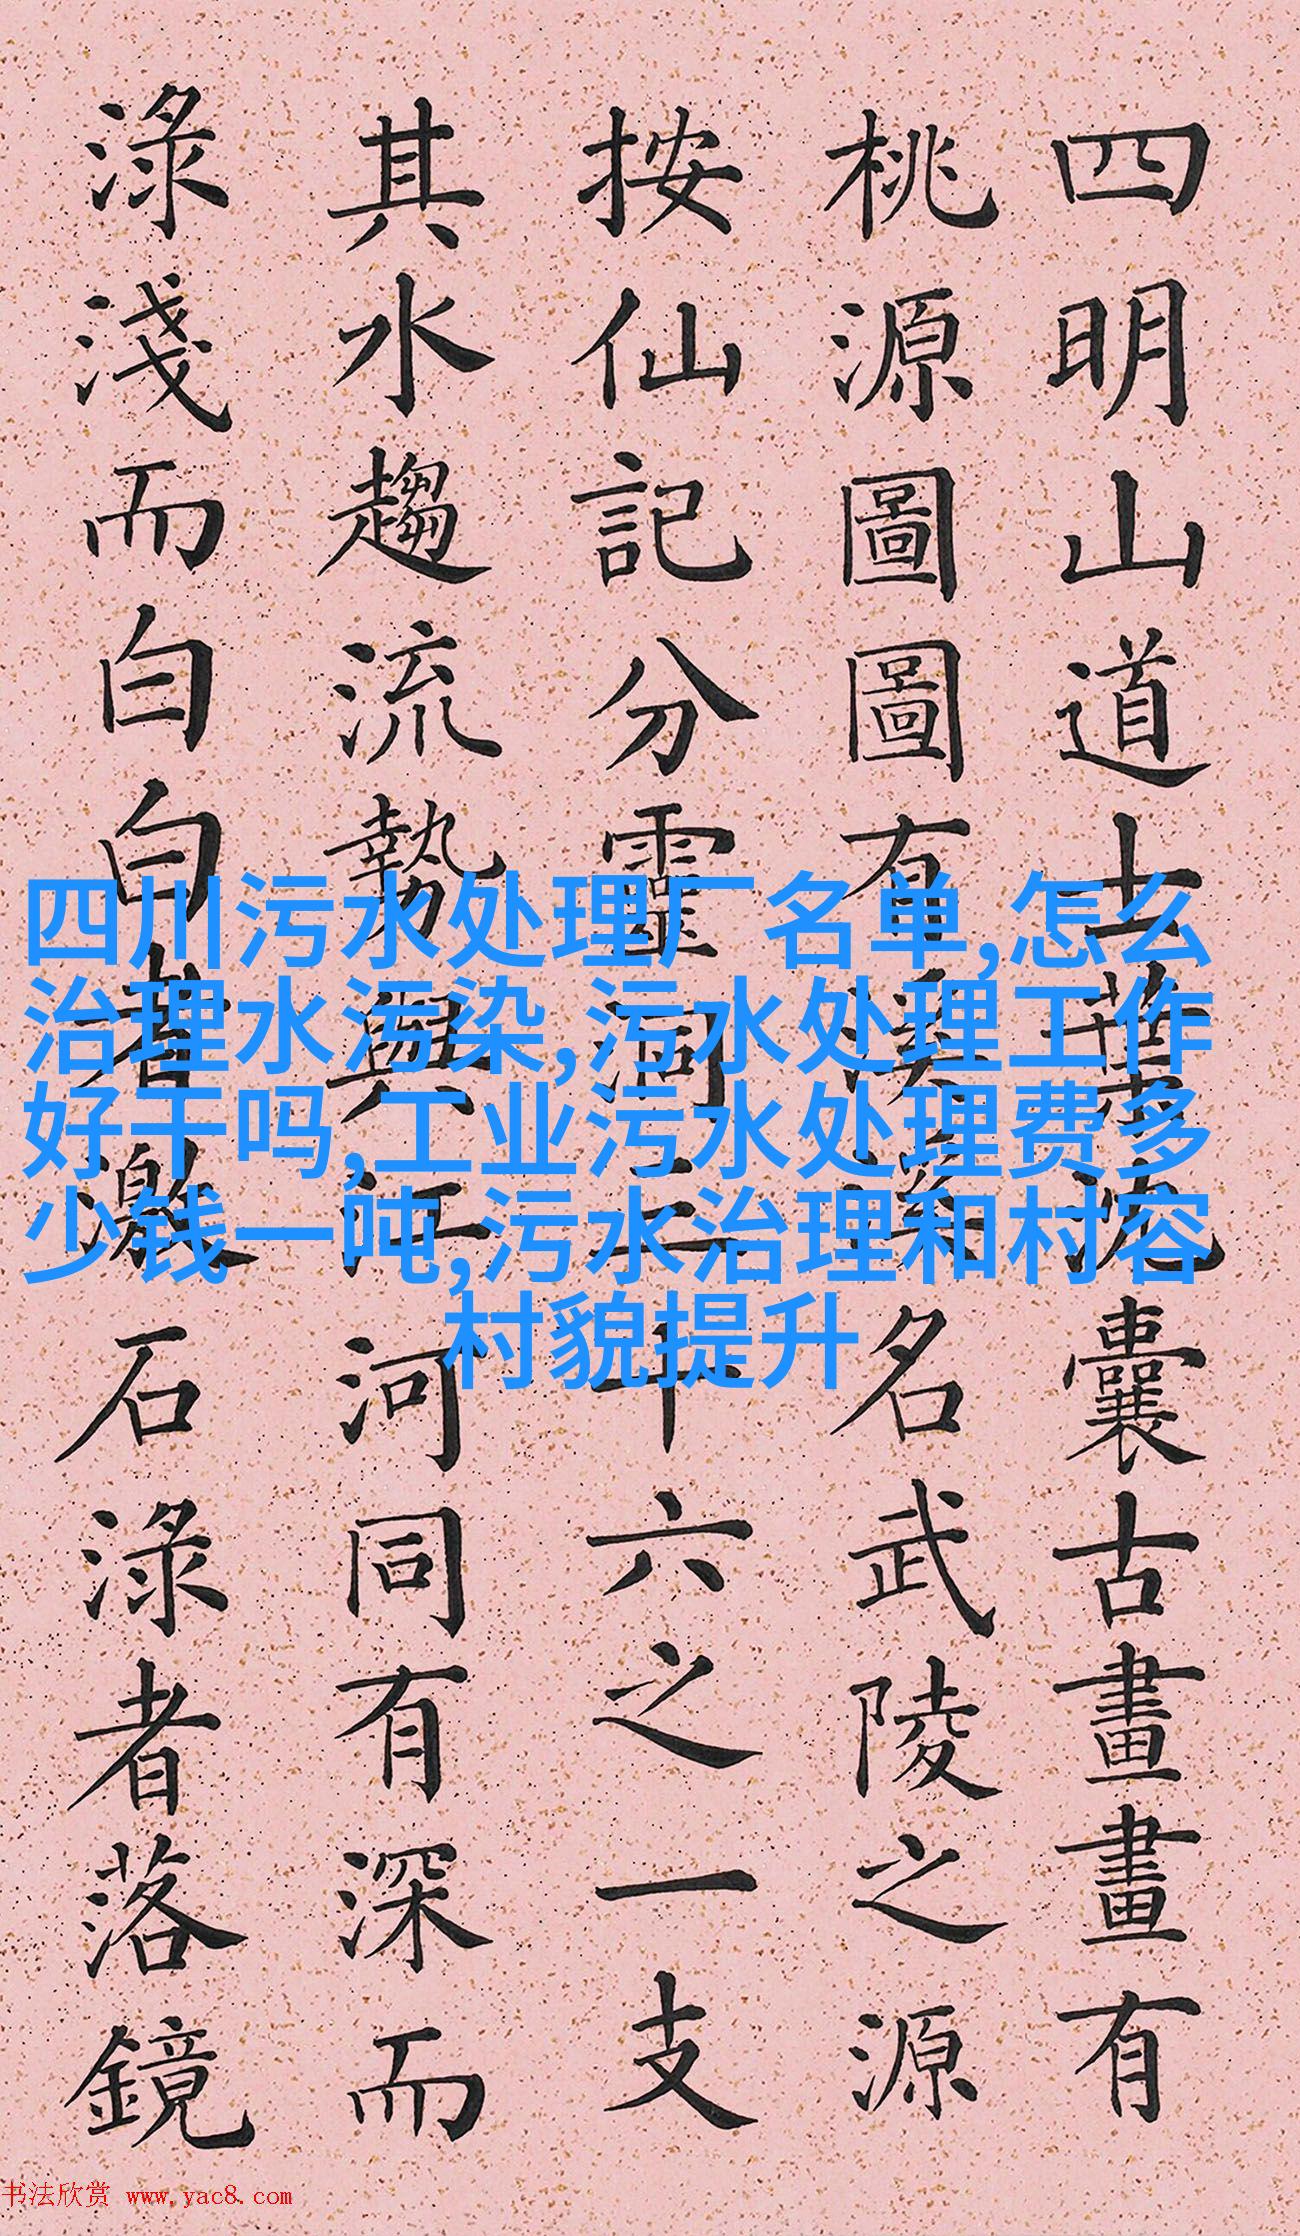 四明山道士葉沈囊古畫畫有
桃源圖圖有溪溪名武陵之源
按仙記分靈洞三十六之一支
其水趨流勢與江河同有深而
淥淺而白白者激石淥者落鏡
四川污水处理厂名单,怎么
治理水污染,污水处理工作
好干吗,工业污水处理费多
少钱一吨,污水治理和村容
村貌提升
书法欣赏 www.yac8.com